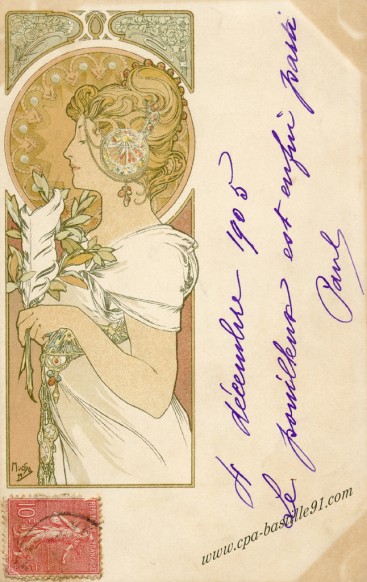 4 décembre 1905
Le pouilleux est enfin parti
Paul
Mucha
10
www.cpa-bastille91.com